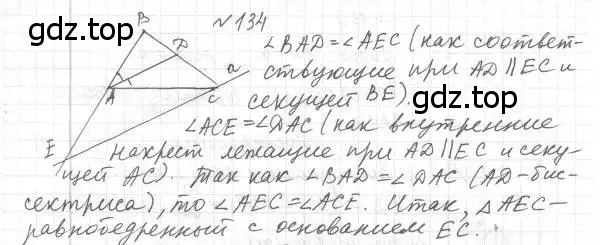 №134
gdz.top
B
D
a
A
C
E
∠BAD=∠AEC (как соответ-
ствующие при AD∥EC и
секущей BE).
gdz.top
∠ACE=∠DAC (как внутренние
накрест лежащие при AD∥EC и секу-
щей AC). Так как ∠BAD=∠DAC (AD-бис-
сектриса), то ∠AEC=∠ACE. Итак, △AEC-
равнобедренный с основанием EC.
gdz.top